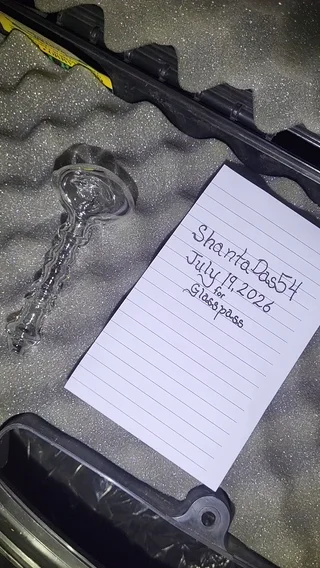 ShantaDas54
July 19, 2026
for
Glasspass